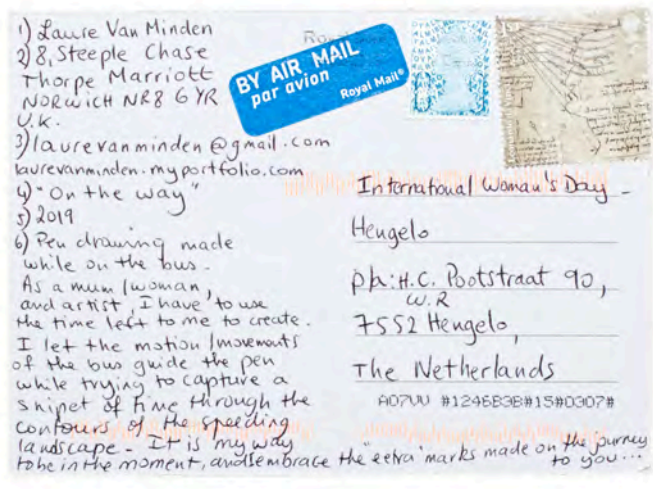 1) Laure Van Minden
2) 8, Steeple Chase
Thorpe Marriott
NORWICH NR8 6YR
U.K.
3) laurevanminden@gmail.com
laurevanminden.myportfolio.com
4) "On the way"
5) 2019
6) Pen drawing made
while on the bus.
As a mum/woman,
and artist, I have to use
the time left to me to create.
I let the motion/movements
of the bus guide the pen
while trying to capture a
snipet of time through the
contours of the speeding
landscape - It is my way
to be in the moment, and embrace the "extra" marks made on the journey
to you...
BY AIR MAIL
par avion
Royal Mail®
International Woman's Day -
Hengelo
p/a: H.C. Pootstraat 90,
W.R
7552 Hengelo,
The Netherlands
A07VU #1246B3B#15#0307#